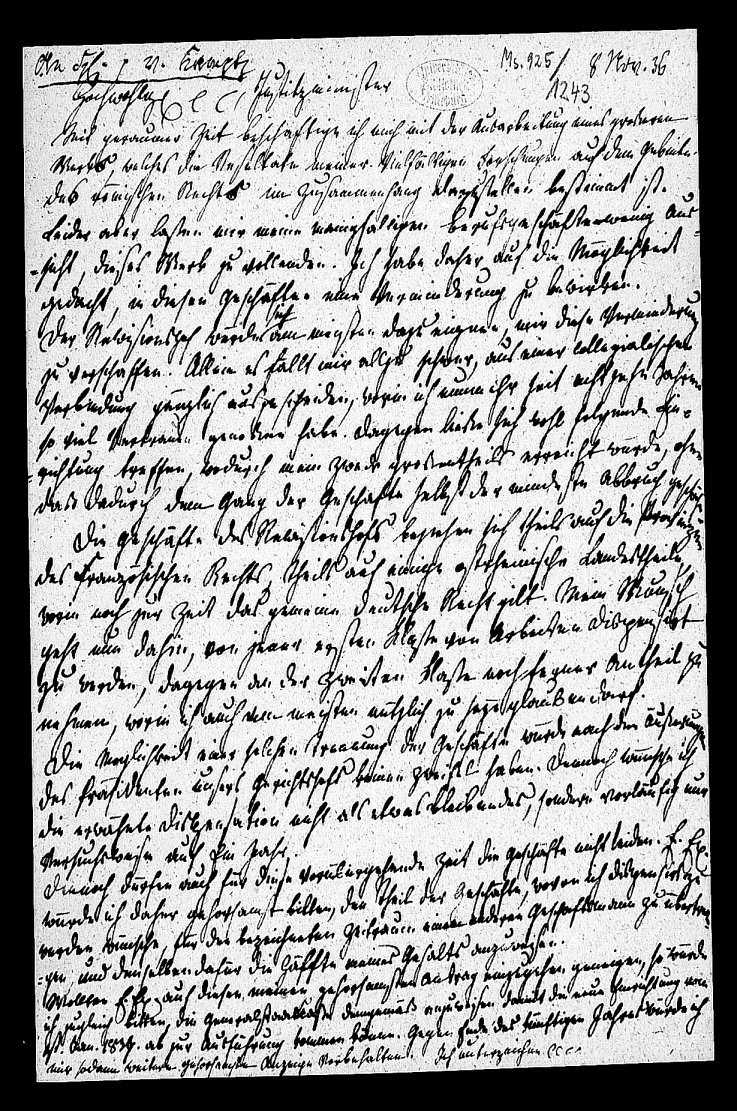 An Fh. v. Kamptz
Ms. 925/
1243
8 Nov. 36
Hochwohlg. Justizminister
Seit geraumer Zeit beschäftige ich mich mit der Ausarbeitung eines größeren
Werks, welches die Resultate meiner vielfältigen Forschungen auf dem Gebiete
des römischen Rechts im Zusammenhang darzustellen bestimmt ist.
Leider aber lassen mir meine mannigfaltigen Berufsgeschäfte wenig Aus-
sicht, dieses Werk zu vollenden. Ich habe daher auf die Möglichkeit
gedacht, in diesen Geschäften eine Verminderung zu bewirken.
Der Revisionshof würde sich am meisten dazu eignen, mir diese Verminderung
zu verschaffen. Allein es fällt mir allzu schwer, aus einer collegialischen
Verbindung gänzlich auszuscheiden, worin ich nunmehr seit achtzehn Jahren
so viel Vertrauen genossen habe. Dagegen ließe sich wohl folgende Ein-
richtung treffen, wodurch mein Zweck großentheils erreicht würde, ohne
daß dadurch dem Gang der Geschäfte selbst der mindeste Abbruch geschähe.
Die Geschäfte des Revisionshofs beziehen sich theils auf die Provinzen
des französischen Rechts, theils auf einige ostrheinische Landestheile,
worin noch zur Zeit das gemeine deutsche Recht gilt. Mein Wunsch
geht nun dahin, von jener ersten Klasse von Arbeiten dispensirt
zu werden, dagegen an der zweiten Klasse noch ferner Antheil zu
nehmen, worin ich auch am meisten nützlich zu seyn glauben darf.
Die Möglichkeit einer solchen Trennung der Geschäfte würde nach den Äußerungen
des Präsidenten unsers Gerichtshofs keinen Zweifel haben. Dennoch wünsche ich
die erwähnte Dispensation nicht als etwas bleibendes, sondern vorläufig nur
versuchsweise auf Ein Jahr.
Dennoch dürfen auch für diese vorübergehende Zeit die Geschäfte nicht leiden. E. Ex.
würde ich daher gehorsamst bitten, den Theil der Geschäfte, wovon ich dispensirt zu
werden wünsche, für den bezeichneten Zeitraum einem anderen Geschäftsmann zu übertra-
gen, und demselben dafür die Hälfte meines Gehalts anzuweisen.
Wollten E. Ex. auf diesen meinen gehorsamsten Antrag einzugehen geneigen, so würde
ich zugleich bitten, die Generalstaatskasse demgemäß anzuweisen, damit die neue Einrichtung vom
1st. Jan. 1837 ab zur Ausführung kommen könne. Gegen Ende des künftigen Jahres würde ich
mir sodann weitere gehorsamste Anzeige vorbehalten. Ich unterzeichne